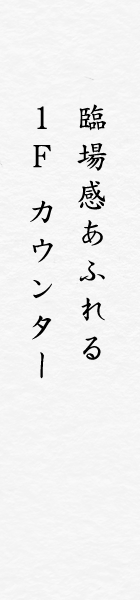 臨場感あふれる
1F カウンター